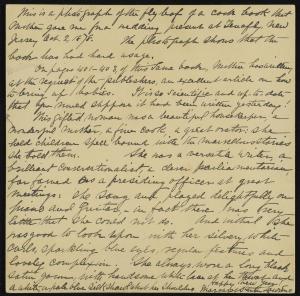 This is a photograph of the fly leaf of a cook book that
Mother gave me for a wedding present at Tenafly, New
Jersey Oct. 2, 1878. The photograph shows that the
book has had hard usage.
On pages 400-403 of this same book, Mother has written
at the request of the publishers, an excellent article on how
to bring up babies. It is so scientific and up to date
that you would suppose it have been written yesterday!
This gifted woman was a beautiful housekeeper, a
wonderful mother, a fine cook, a great orator: she
held children spell bound with the marvellous stories
she told them. She was a versatile writer, a
brilliant conversationalist, a clever parliamentarian,
far famed as a presiding officer at great
meetings. She sang and played delightfully on
piano and guitar, in fact there was very
little that she could not do. And withal she
was good to look upon with her silvery white
curls, sparkling blue eyes, regular features and
lovely complexion. She always wore a black
satin gown, with handsome white lace at the throat and
a white or pale blue silk shawl about her shoulders.
Happy New Year
Margaret Stanton Lawrence